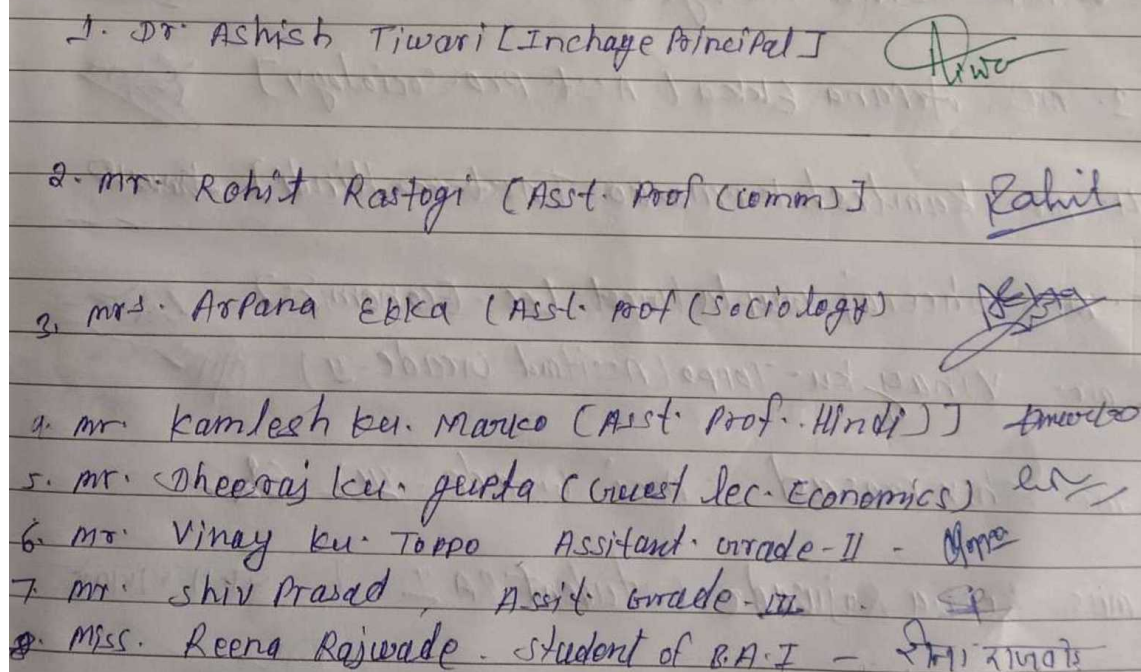 1. Dr. Ashish Tiwari [Inchage Principal] Tiwa
2. mr. Rohit Rastogi (Asst. Prof (comm)] Rahil
3. mrs. Arpana Ekka (Asst. Prof (Sociology)
4. mr. Kamlesh ku. Marko (Asst. Prof. Hindi)]
5. mr. Dheeraj ku. gupta (Guest lec. Economics)
6. mr. Vinay ku. Toppo Assitant. Grade-II -
7. mr. Shiv Prasad, Assit. Grade-III. SP
8. Miss. Reena Rajwade. Student of B.A.I - रीना राजवाड़े